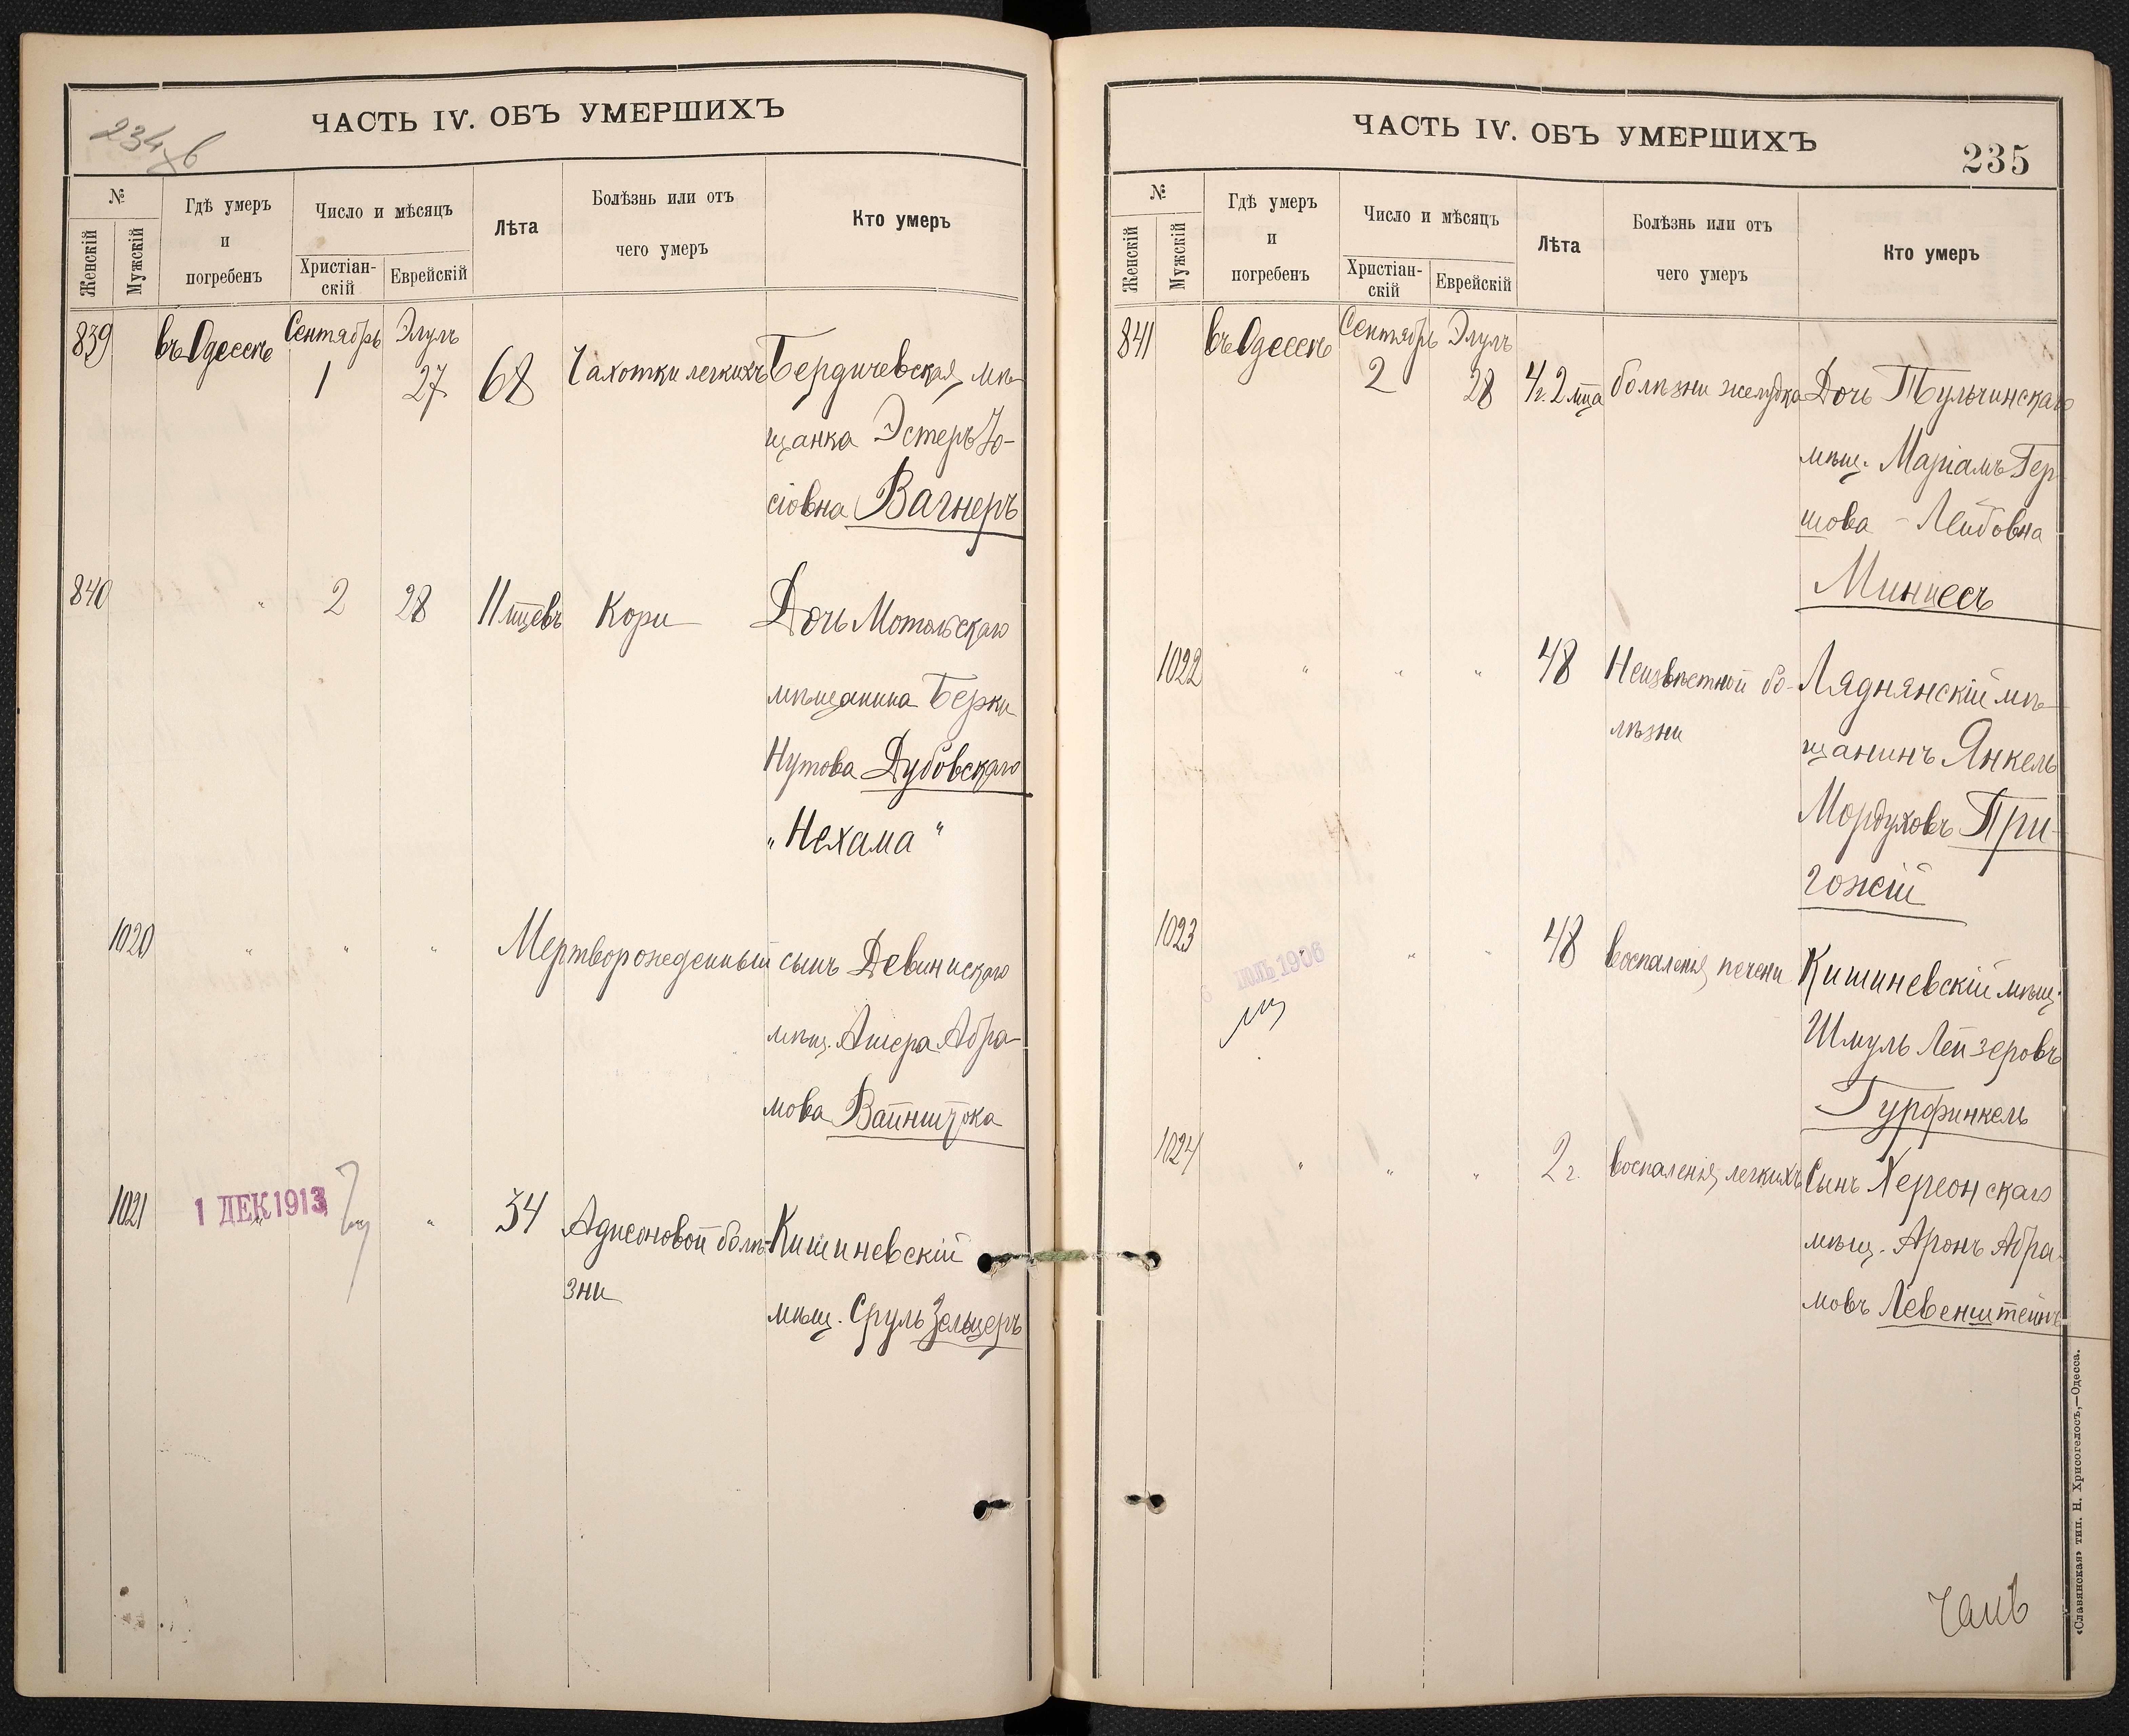 234 об
ЧАСТЬ IV. ОБЪ УМЕРШИХЪ
№
Женскій
Мужскій
Гдѣ умеръ
и
погребенъ
Число и мѣсяцъ
Христіан-
скій
Еврейскій
Лѣта
Болѣзнь или отъ
чего умеръ
Кто умеръ
839 въ Одессѣ Сентябрь 1 Элулъ 27 68 Чахотки легкихъ Бердичевская мѣ-
щанка Эстеръ Іо-
сіовна Вагнеръ
840 " 2 28 11 мцевъ Кори Дочь Мотольскаго
мѣщанина Берки
Нутова Дубовскаго
„Нехама"
1020 " " " Мертворожденный сынъ Девинискаго
мѣщ. Ашера Абра-
мова Вайнштока
1021 1 ДЕК 1913 " " 34 Адисоновой болѣ- Кишиневскій
зни мѣщ. Сруль Зельцеръ
ЧАСТЬ IV. ОБЪ УМЕРШИХЪ
235
№
Женскій
Мужскій
Гдѣ умеръ
и
погребенъ
Число и мѣсяцъ
Христіан-
скій
Еврейскій
Лѣта
Болѣзнь или отъ
чего умеръ
Кто умеръ
841 въ Одессѣ Сентябрь 2 Элулъ 28 4 г. 2 мца болѣзни желудка Дочь Тульчинскаго
мѣщ. Маріамъ Гер-
шова - Лейбовна
Минцесъ
1022 " " " 48 Неизвѣстной бо- Ляднянскій мѣ-
лѣзни щанинъ Янкель
Мордуховъ При-
гожій
1023 ІЮЛЬ 1906 " " 48 воспаленія печени Кишиневскій мѣщ.
Шмуль Лейзеровъ
Гурфинкель
1024 " " " 2 г. воспаленія легкихъ Сынъ Херсонскаго
мѣщ. Аронъ Абра-
мовъ Левенштейнъ
«Славянская» тип. Н. Хрисогелосъ,—Одесса.